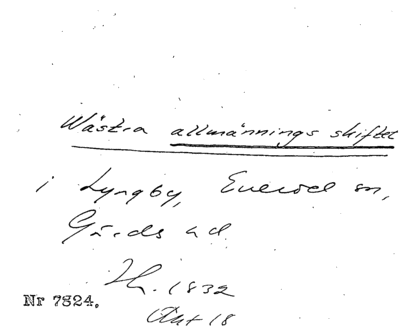 Wästra allmännings skiftet
i Lyngby, Everöd sn,
Gärds hd.
Sh. 1832
Akt 18
Nr 7824.